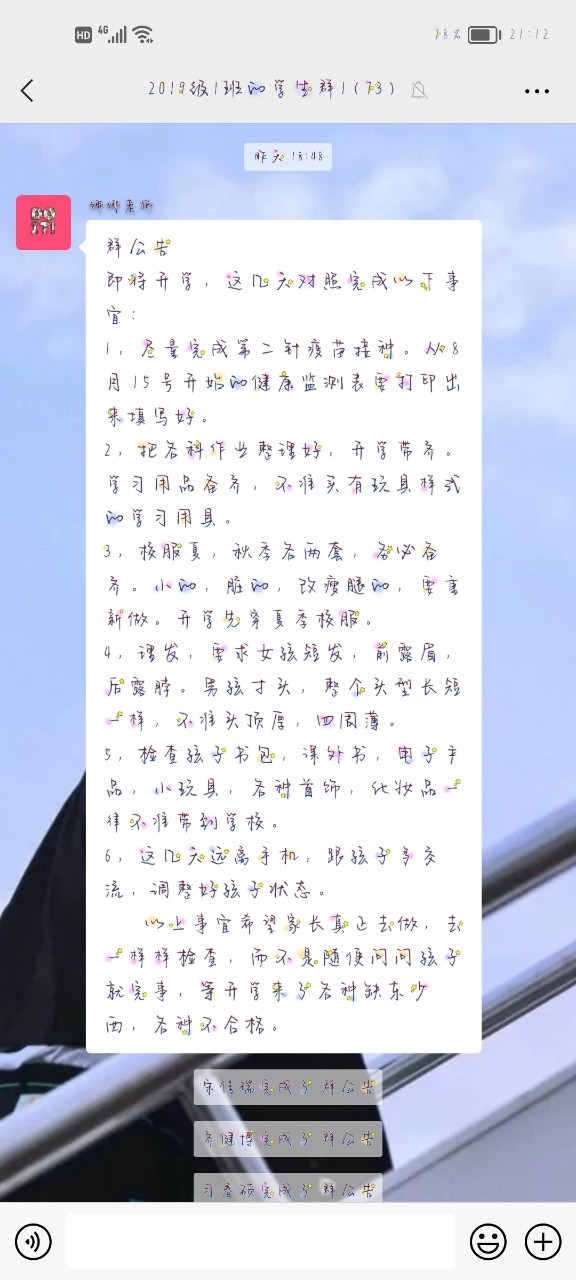 HD 4G 78% 21:12
2019级1班的学生群1(73)
昨天 18:48
群公告
即将开学，这几天对照完成以下事
宜：
1，尽量完成第二针疫苗接种。从8
月15号开始的健康监测表要打印出
来填写好。
2，把各科作业整理好，开学带齐。
学习用品备齐，不准买有玩具样式
的学习用具。
3，校服夏，秋季各两套，务必备
齐。小的，脏的，改瘦腿的，要重
新做。开学先穿夏季校服。
4，理发，要求女孩短发，前露眉，
后露脖。男孩寸头，整个头型长短
一样，不准头顶厚，四周薄。
5，检查孩子书包，课外书，电子产
品，小玩具，各种首饰，化妆品一
律不准带到学校。
6，这几天远离手机，跟孩子多交
流，调整好孩子状态。
以上事宜希望家长真正去做，去
一样样检查，而不是随便问问孩子
就完事，等开学来了各种缺东少
西，各种不合格。
宋佳瑞完成了 群公告
齐健博完成了 群公告
完成了群公告